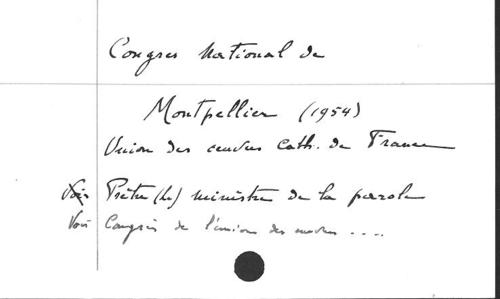 Congres National de
Montpellier (1954)
Union des œuvres Cath. de France
Voir Prêtre (le) ministre de la parole
Voir Congrès de l'union des œuvres ....